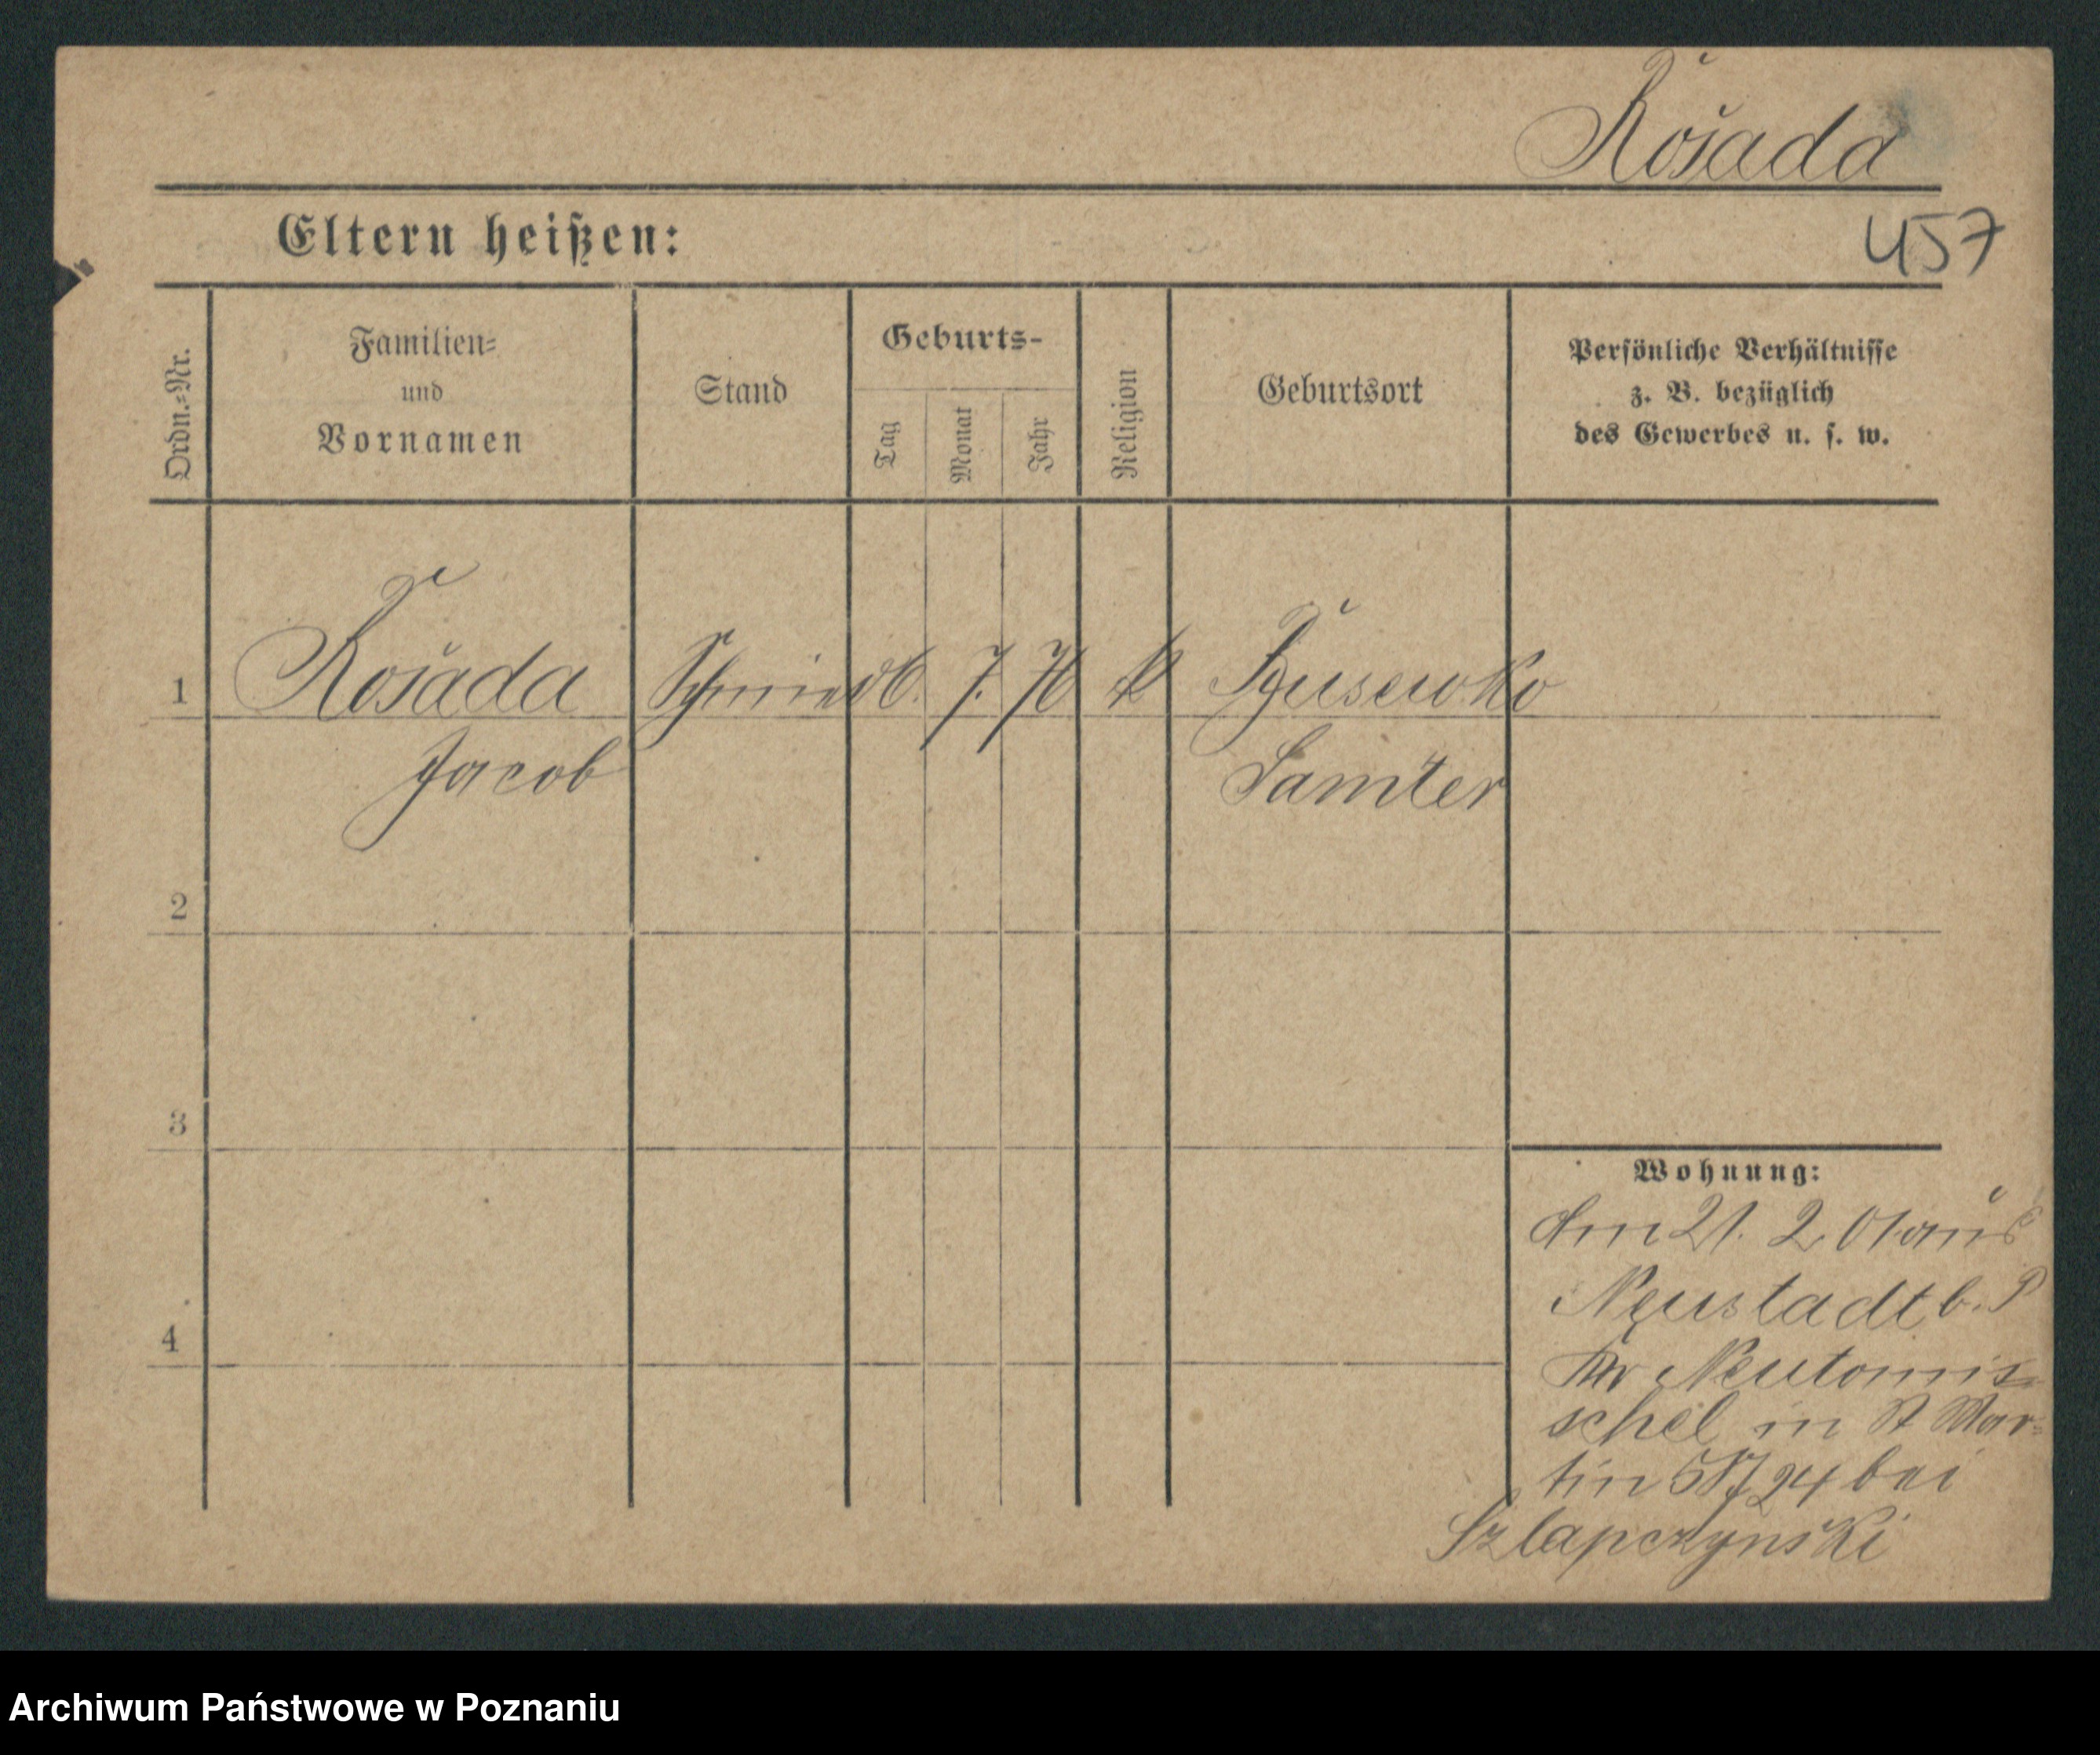 Rosada
Eltern heißen:
457
Ordn.=Nr.
Familien=
und
Vornamen
Stand
Geburts-
Tag
Monat
Jahr
Religion
Geburtsort
Persönliche Verhältnisse
z. B. bezüglich
des Gewerbes u. s. w.
1
Rosada Schmied 6. 7. 76 k
Jacob
Samter
2
3
4
Wohnung:
Am 21. 2. 01 aus
Neustadt b. P
Kr Neutomi=
schel in St Mar=
tin 24 bei
Szlapczynski
Archiwum Państwowe w Poznaniu